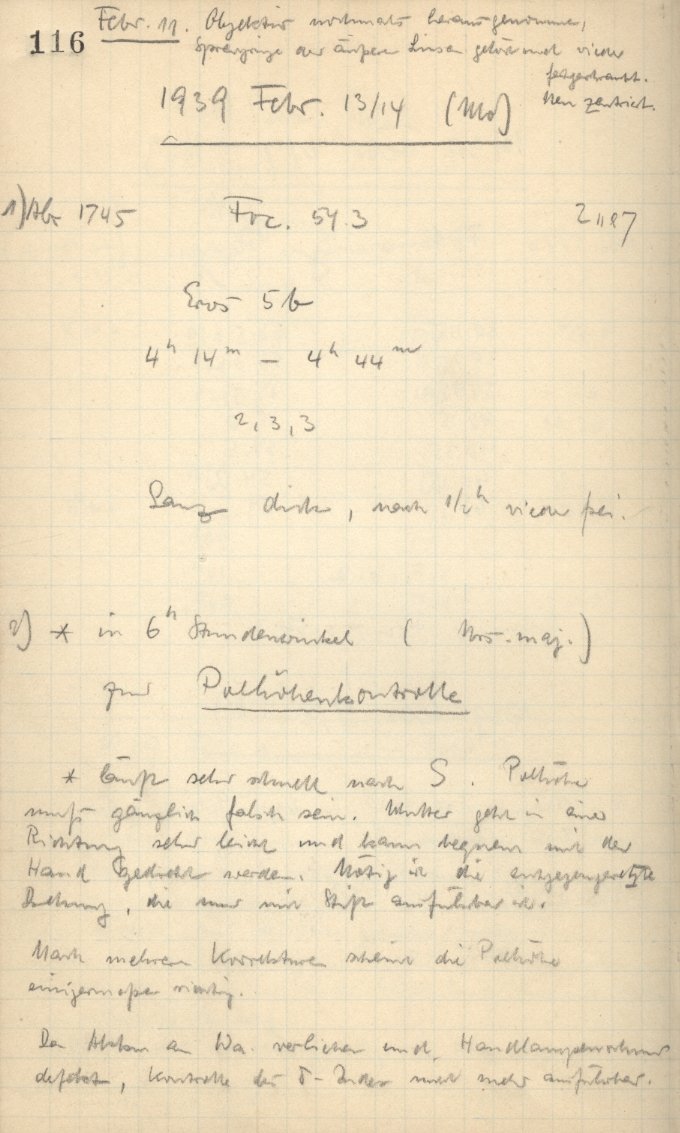 116
Febr. 11. Objektiv nochmals herausgenommen,
Sprengringe der äußeren Linsen gelöst und wieder
festgeschraubt.
Neu zentriert.
1939 Febr. 13/14 (Mo)
1) Abr 1745 Foc. 54.3
Eros 5b
4h 14m – 4h 44m
2, 3, 3
Ganz dick, nach 1/2h wieder frei.
2) * in 6h Stundenwinkel ( Urs. maj. )
zur Polhöhenkontrolle
* läuft sehr schnell nach S. Polhöhe
muß gänzlich falsch sein. Mutter geht in einer
Richtung sehr leicht und kann bequem mit der
Hand gedreht werden. Nötig ist die entgegengesetzte
Drehung, die nur mit Stift ausführbar ist.
Nach mehreren Korrekturen scheint die Polhöhe
einigermaßen richtig.
Da und Handlampen
defekt, Kontrolle des δ-Index nicht mehr ausführbar.